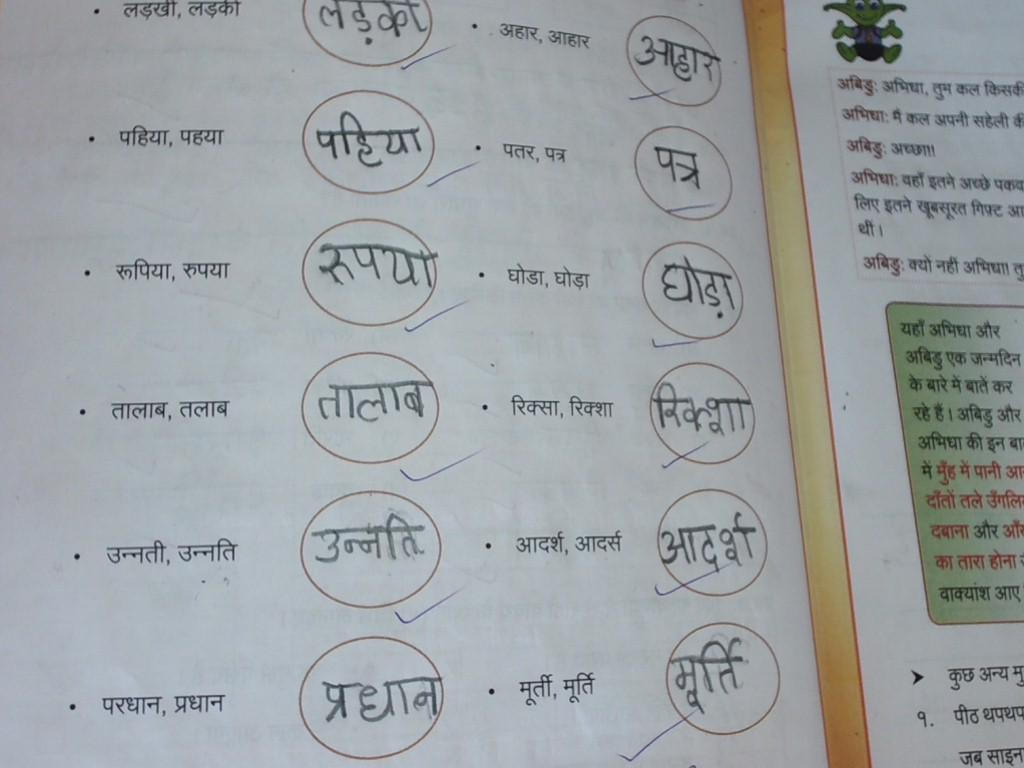 लड़खी, लड़की
लड़की
अहार, आहार
आहार
पहिया, पहया
पहिया
पतर, पत्र
पत्र
रूपिया, रुपया
रूपया
घोडा, घोड़ा
घोड़ा
तालाब, तलाब
तालाब
रिक्सा, रिक्शा
रिक्शा
उन्नती, उन्नति
उन्नति
आदर्श, आदर्स
आदर्श
परधान, प्रधान
प्रधान
मूर्ती, मूर्ति
मूर्ति
अबिडु: अभिधा, तुम कल
अभिधा: मैं कल अपनी सहेली
अबिडु: अच्छा!!
अभिधा: वहाँ इतने अच्छे
लिए इतने खूबसूरत गिफ्ट
थीं।
अबिडु: क्यों नहीं अभिधा!
यहाँ अभिधा और
अबिडु एक जन्मदिन
के बारे में बातें कर
रहे हैं। अबिडु और
अभिधा की इन
में मुँह में पानी
दाँतों तले
दबाना और
का तारा होना
वाक्यांश आए
➤ कुछ अन्य
१. पीठ
जब